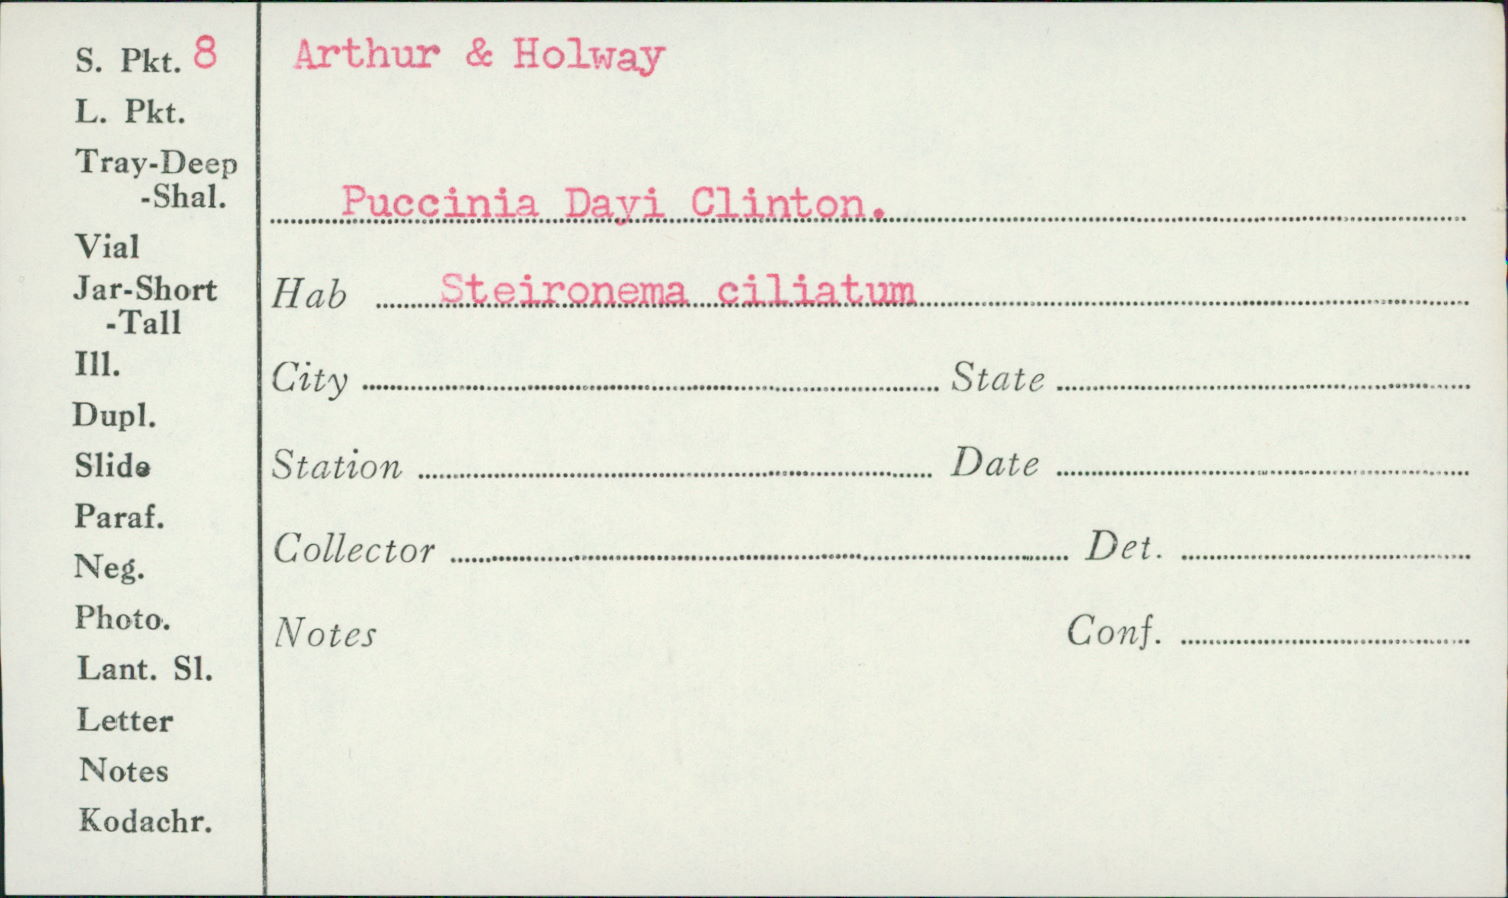 S. Pkt. 8
L. Pkt.
Tray-Deep
-Shal.
Vial
Jar-Short
-Tall
Ill.
Dupl.
Slide
Paraf.
Neg.
Photo.
Lant. Sl.
Letter
Notes
Kodachr.
Arthur & Holway
Puccinia Dayi Clinton.
Hab Steironema ciliatum
City State
Station Date
Collector Det.
Notes Conf.